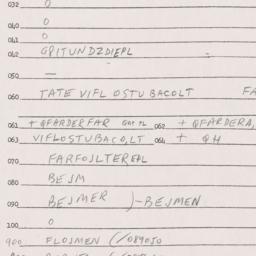 032 0
040 0
041 0
042 GPITUNDZDIEPL
050 —
060 TATE VIFL OSTUBACOLT FA
061 + QFARDERFAR 062 + QFARDERA,
063 VIFLOSTUBACO,LT 064 + QH
070 FARFOJLTEREPL
080 BEJM
090 BEJMER )-BEJMEN
100 0
900 FLOJMEN (/089050